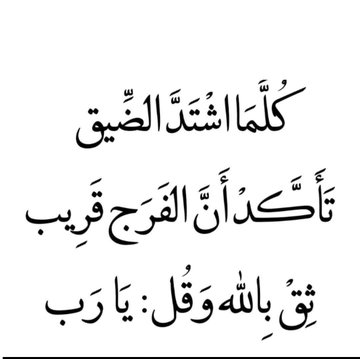 كُلَّمَا اشْتَدَّ الضِّيق
تَأَكَّدْ أَنَّ الفَرَج قَرِيب
ثِقْ بِالله وَقُل: يَا رَب